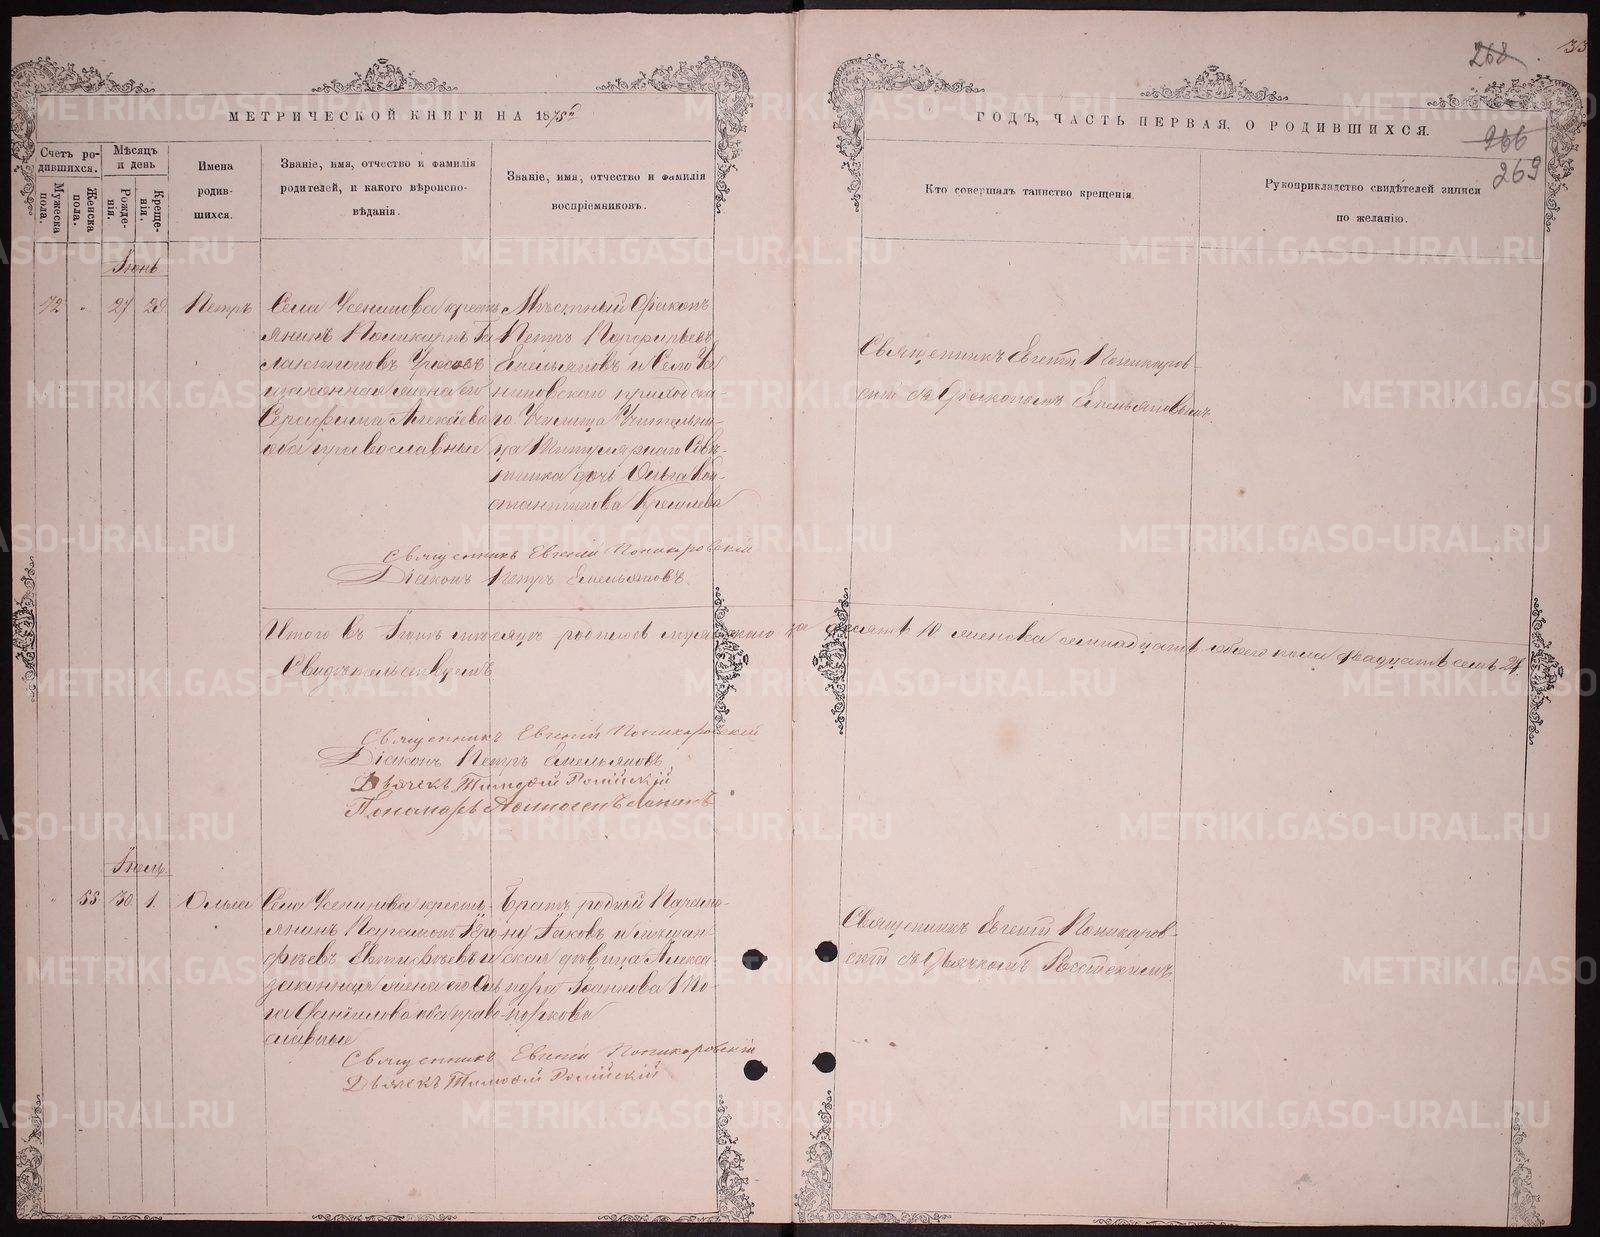 268
33
МЕТРИЧЕСКОЙ КНИГИ НА 1875й
ГОДЪ, ЧАСТЬ ПЕРВАЯ, О РОДИВШИХСЯ.
266
269
Счетъ родившихся.
Мужеска пола.
Женска пола.
Мѣсяцъ и день
Рожденія.
Крещенія.
Имена родившихся.
Званіе, имя, отчество и фамилія родителей, и какого вѣроисповѣданія.
Званіе, имя, отчество и фамилія воспріемниковъ.
Кто совершалъ таинство крещенія.
Рукоприкладство свидѣтелей записи по желанію.
Іюнь
72 " 27 29 Петръ
янинъ Поликарпъ
законная жена его
Серафима Алексѣева
оба православные
Мѣстный Діаконъ
Петръ Порфирьевъ
Емельяновъ и Села
приходска-
го Училища Учительни-
ца Титулярнаго Совѣ-
тника дочь Ольга Кон-
стантинова
Священникъ Евгеній Поникаров-
скій съ Діакономъ Емельяновымъ
Священникъ Евгеній Поникаровскій
Діаконъ Петръ Емельяновъ
Итого въ Іюнѣ мѣсяцѣ родилось мужескаго десять 10 женска семнадцать обоего пола двадцать семь 27.
Свидѣтельствуемъ
Священникъ Евгеній Поникаровскій
Діаконъ Петръ Емельяновъ
Дьячекъ Тимофей
Пономарь
Іюль
" 55 30 1. Ольга
янинъ Парамонъ
законная жена его Оль-
га Данилова оба право-
славные
Братъ родной Парамо-
ну Іаковъ и мѣщан-
ская дѣвица Алекса-
ндра Іоаннова
Священникъ Евгеній Поникаров-
скій съ Дьячкомъ
Священникъ Евгеній Поникаровскій
Дьячекъ Тимофей
METRIKI.GASO-URAL.RU